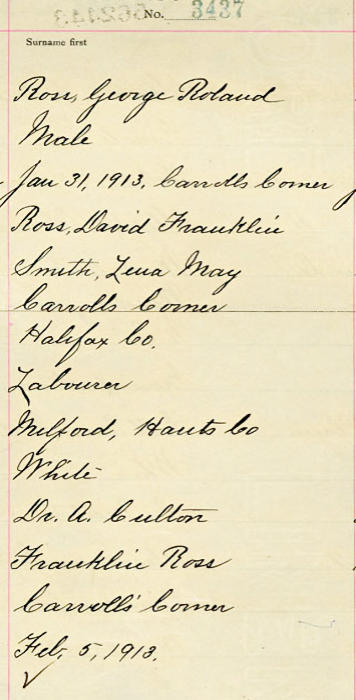 No. 3437
Surname first
Ross, George Roland
Male
Jan 31, 1913, Carrolls Corner
Ross, David Franklin
Smith, Lena May
Carrolls Corner
Halifax Co.
Labourer
Milford, Hants Co
White
Dr. A. Culton
Franklin Ross
Carrolls' Corner
Feb, 5, 1913.